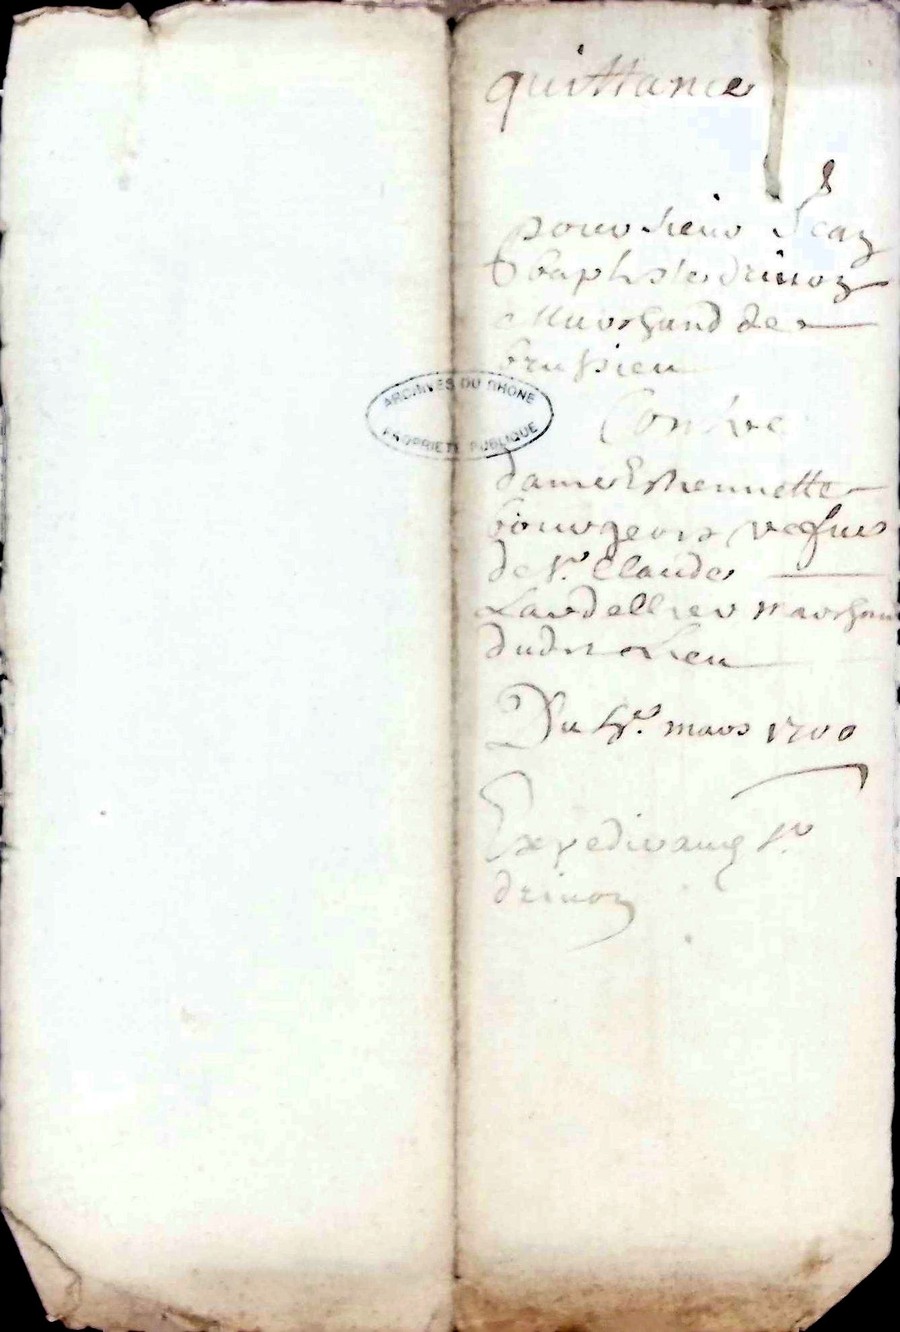 quittance
pour sieur Jean
baptiste drivon
Marchand de
brussieu
ARCHIVES DU RHONE
PROPRIETE PUBLIQUE
Contre
dame Estiennette
bourgeois vefue
de Sr. Claude
Lardellier marchand
dudit Lieu
Du mars 1700
Expedié aud Sr.
drivon